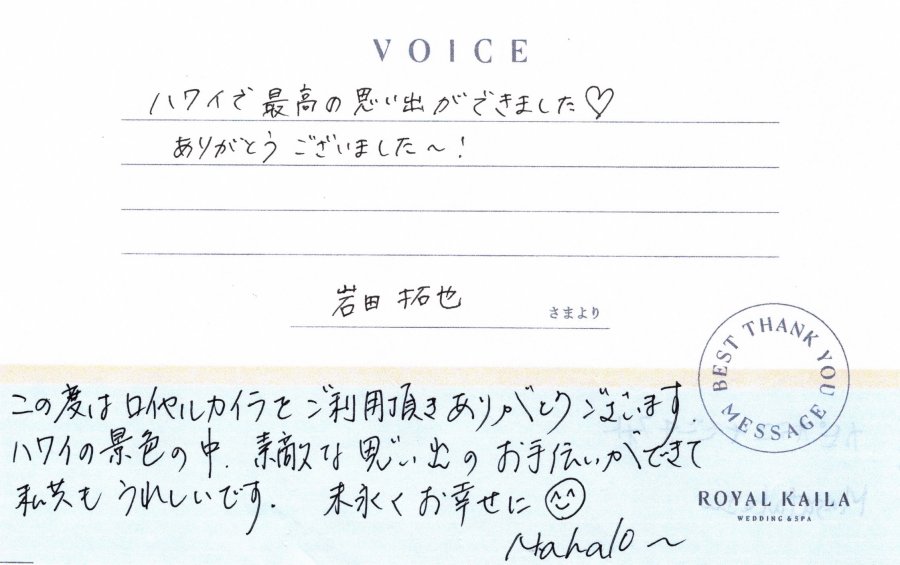 VOICE
ハワイで最高の思い出ができました♡
ありがとうございました〜!
岩田拓也 さまより
BEST THANK YOU MESSAGE
この度はロイヤルカイラをご利用頂きありがとうございます.
ハワイの景色の中、素敵な思い出のお手伝いができて
私共もうれしいです. 末永くお幸せに
ROYAL KAILA
WEDDING & SPA
Mahalo〜